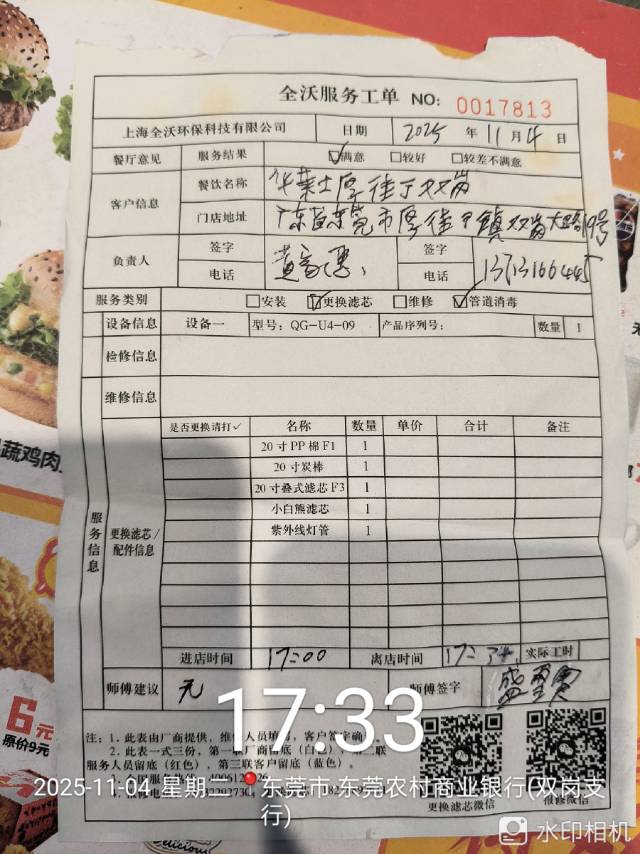 全沃服务工单 NO: 0017813
上海全沃环保科技有限公司 日期 2025 年 11 月 4 日
餐厅意见 服务结果 ☑满意 □较好 □较差不满意
客户信息 餐饮名称 华莱士厚街丁双岗
门店地址 广东省东莞市厚街镇双岗大路19号
负责人 签字 签字
电话 电话
服务类别 □安装 ☑更换滤芯 □维修 ☑管道消毒
设备信息 设备一 型号: QG-U4-09 产品序列号: 数量 1
检修信息
维修信息
服务信息 更换滤芯/配件信息
是否更换请打✓ 名称 数量 单价 合计 备注
20寸PP棉F1 1
20寸炭棒 1
20寸叠式滤芯F3 1
小白熊滤芯 1
紫外线灯管 1
进店时间 17:00 离店时间 实际工时
师傅建议 无 师傅签字
17:33
注: 1. 此表由厂商提供, 客户签字确
2. 此表一式三份, 第一联厂商留底
服务人员留底(红色), 第三联客户留底(蓝色)。
2025-11-04 星期二 东莞市·东莞农村商业银行(双岗支行)
更换滤芯微信 报修微信
水印相机
蔬鸡肉
6元
原价9元